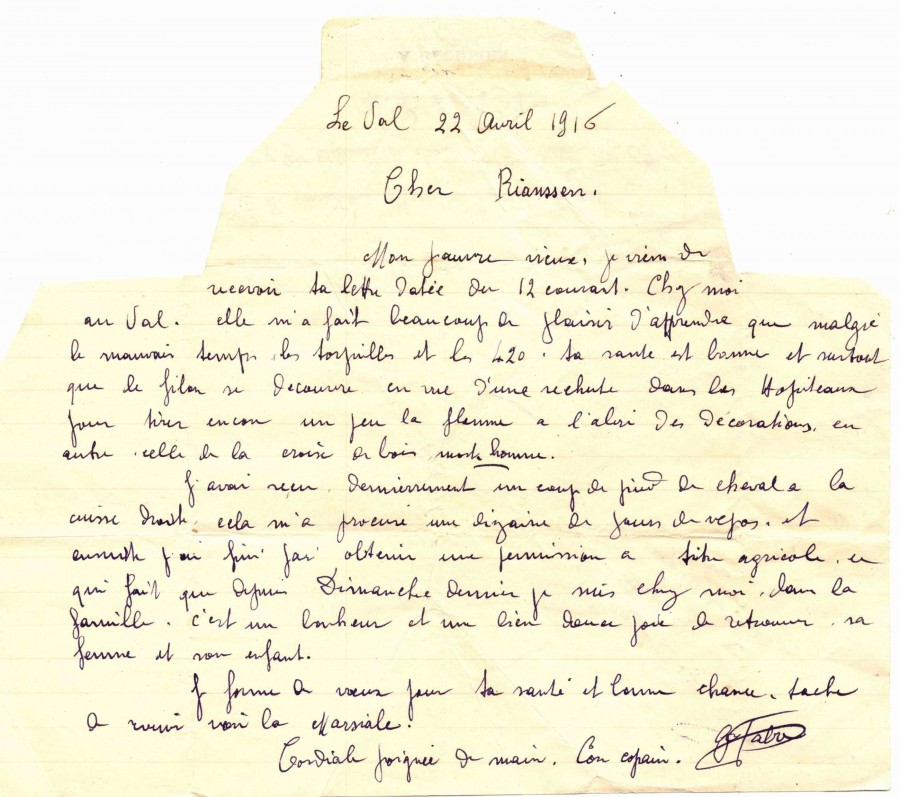 Le Val 22 Avril 1916
Cher Rianssen.
Mon pauvre vieux, je viens de
recevoir ta lettre datée du 12 courant. Chez moi
au Val. elle m'a fait beaucoup de plaisir d'apprendre que malgré
le mauvais temps, les torpilles et les 420. ta santé est bonne et surtout
que le filon se decouvre en vue d'une rechute dans les Hopiteaux
pour tirer encore un peu la flemme a l'abri des décorations, en
autre celle de la croise de bois
J'avai reçu dernierrement un coup de pied de cheval a la
cuisse droite, cela m'a procuré une dizaine de jours de repos. et
ensuite j'ai fini par obtenir une permission a titre agricole. ce
qui fait que depuis Dimanche dernier je suis chez moi, dans la
famille. c'est un bonheur et une bien douce joie de retrouver sa
femme et son enfant.
Je forme de vœux pour ta santé et bonne chance. tache
de voir la
Cordiale poignée de main. Ton copain. G Fabre